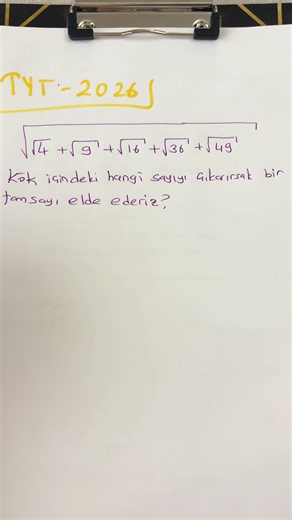 TYT - 2026
√(√4 + √9 + √16 + √36 + √49)
Kök içindeki hangi sayıyı çıkarırsak bir
tamsayı elde ederiz?